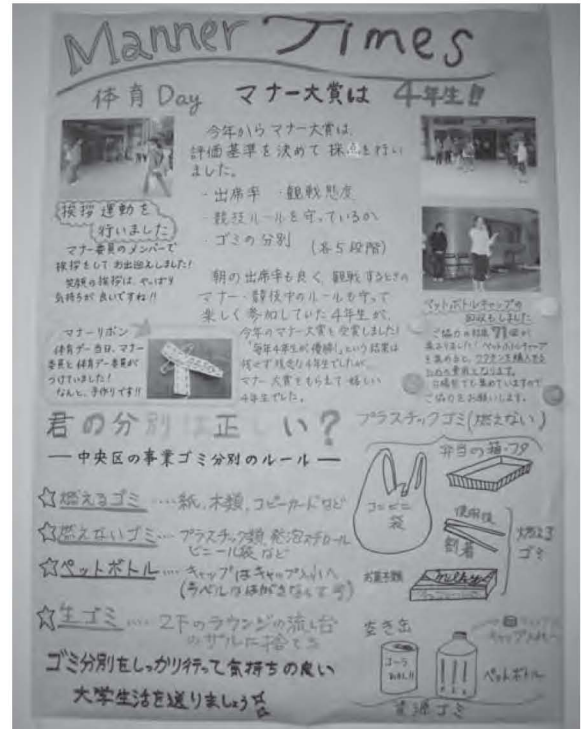 Manner Times
体育Day マナー大賞は 4年生!!
今年からマナー大賞は、
評価基準を決めて採点を行い
ました。
・出席率 ・観戦態度
・競技ルールを守っているか
・ゴミの分別 (各5段階)
朝の出席率も良く、観戦するときの
マナー・競技中のルールも守って
楽しく参加していた4年生が、
今年のマナー大賞を受賞しました!
「毎年4年生が優勝!」という結果は
残せず残念な4年生でしたが、
マナー大賞をもらえて嬉しい
4年生でした。
挨拶運動を
行いました
マナー委員のメンバーで
挨拶をしてお出迎えしました!
笑顔の挨拶は、やっぱり
気持ちが良いですね!!
マナーリボン
体育デー当日、マナー
委員と体育デー委員が
つけていました!
なんと、手作りです!!
ペットボトルキャップの
回収もしました
ご協力の結果
集まりました! ペットボトルキャップ
を集めると、ワクチンを購入する
ための費用となります。
でも集めていますので
ご協力をお願いします。
君の分別は正しい?
―中央区の事業ゴミ分別のルール―
☆燃えるゴミ ‥‥紙、木類、コピーカードなど
☆燃えないゴミ‥‥プラスチック類、発泡スチロール
ビニール袋など
☆ペットボトル‥‥キャップはキャップ入れへ
(ラベルははがさなくて可)
☆生ゴミ‥‥2下のラウンジの流し台
のザルに捨てる
ゴミ分別をしっかり行って気持ちの良い
大学生活を送りましょう☆
プラスチックゴミ(燃えない)
弁当の箱・フタ
コンビニ
袋
使用後
割箸
お菓子類
milky
燃える
ゴミ
空き缶
コーラ
キャップ入れへ
ペットボトル
資源ゴミ